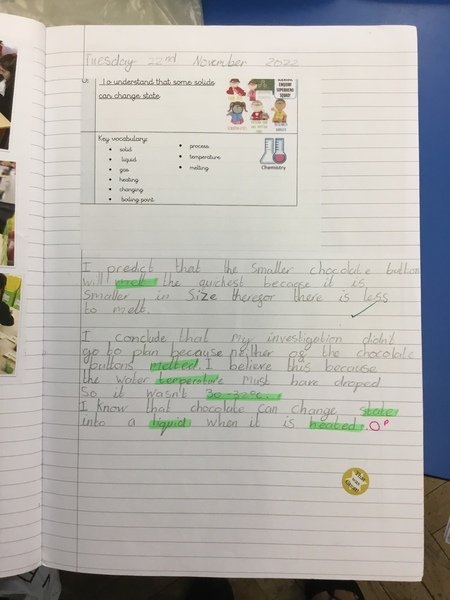 Tuesday 22nd November 2022
To understand that some solids
can change state
ENQUIRY
SUPERHERO
SQUAD
Key vocabulary:
solid
liquid
gas
heating
changing
boiling point
process
temperature
melting
Chemistry
I predict that the smaller chocolate button
will melt the quickest because it is
smaller in Size theregor there is less
to melt.
I conclude that my investigation didn't
go to plan because neither of the chocolate
buttons melted. I believe this because
the water temperature must have dropped
So it wasn't 30-32°c.
I know that chocolate can change state
into a liquid when it is heated.